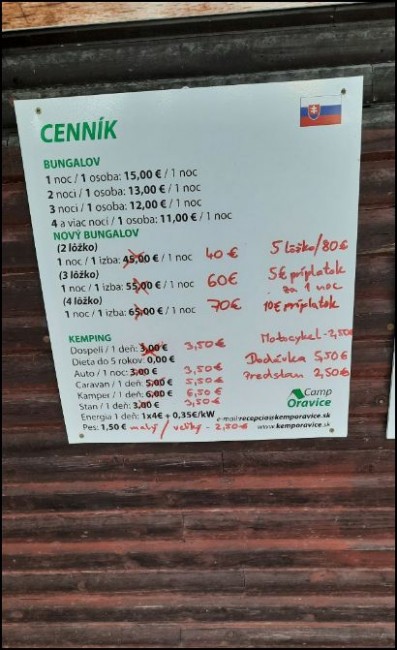 CENNÍK
BUNGALOV
1 noc / 1 osoba: 15,00 € / 1 noc
2 noci / 1 osoba: 13,00 € / 1 noc
3 noci / 1 osoba: 12,00 € / 1 noc
4 a viac nocí / 1 osoba: 11,00 € / 1 noc
NOVÝ BUNGALOV
(2 lôžko)
1 noc / 1 izba: 45,00 € / 1 noc 40 € 5 lôžko/80€
(3 lôžko) 5€ príplatok
za 1 noc
1 noc / 1 izba: 55,00 € / 1 noc 60€
(4 lôžko) 10€ príplatok
1 noc / 1 izba: 65,00 € / 1 noc 70€
KEMPING
Dospelí / 1 deň: 3,00 € 3,50€ Motocykel - 2,50€
Dieťa do 5 rokov: 0,00 €
Auto / 1 noc: 3,00 € 3,50€ Dodávka 5,50€
Caravan / 1 deň: 5,00 € 5,50€ Predstan 2,50€
Kamper / 1 deň: 6,00 € 6,50€
Stan / 1 deň: 3,00 € 3,50€
Camp
Oravice
Energia 1 deň: 1x4€ + 0,35€/kW
e-mail: recepcia@kemporavice.sk
Pes: 1,50 € malý / veľký - 2,50€ www.kemporavice.sk